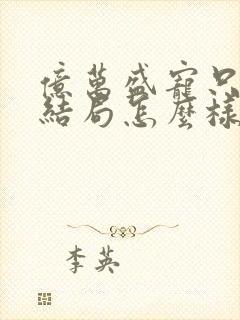 億萬盛寵只
結局怎麼樣
李英